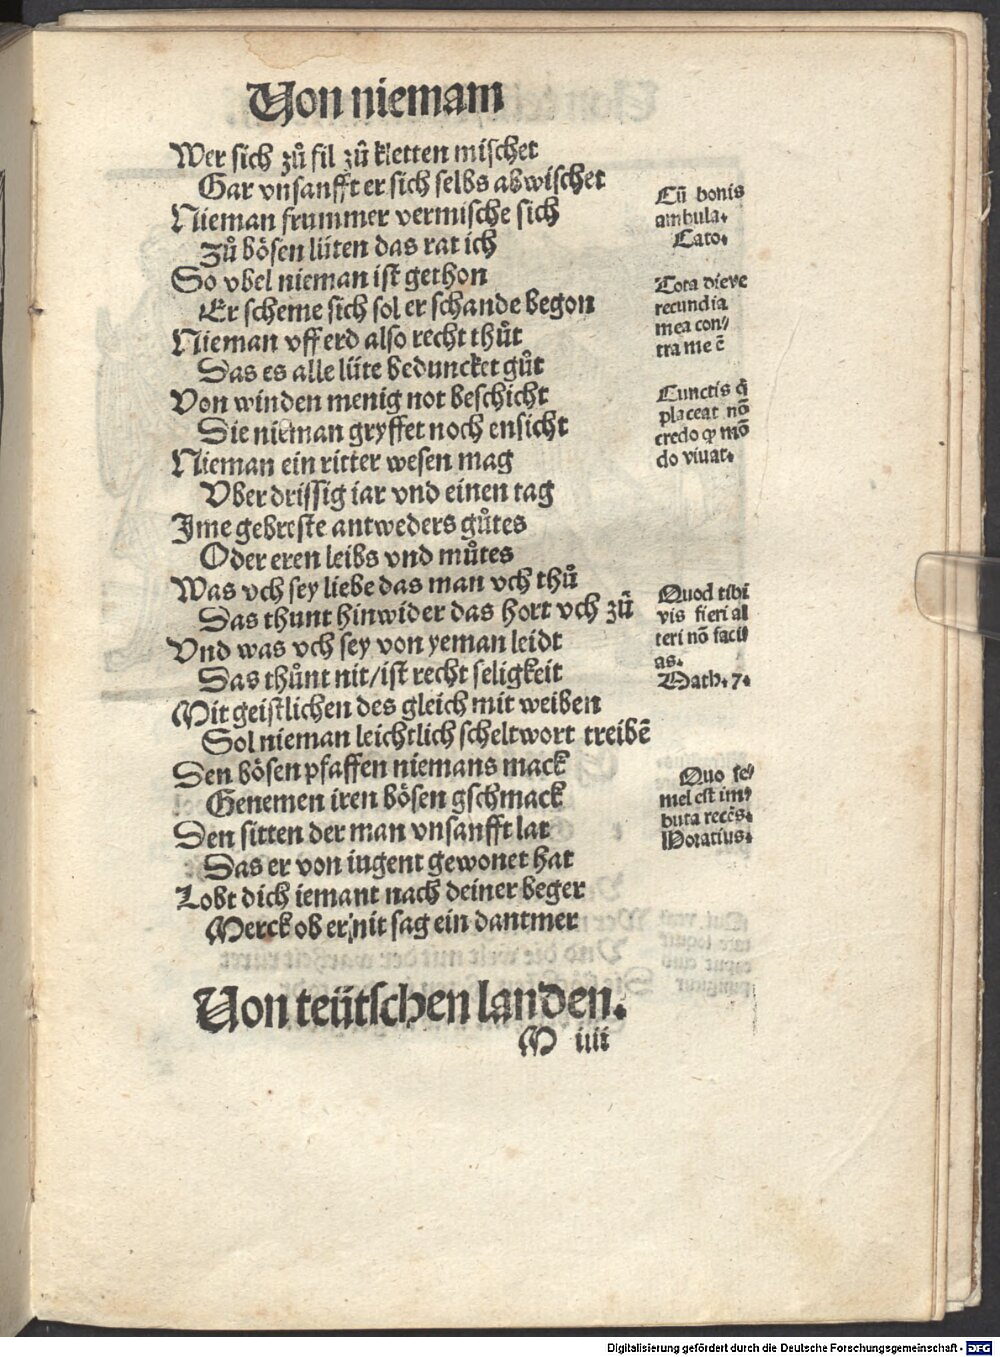 Von niemam
Wer sich zů fil zů kletten mischet
Gar vnsanfft er sich selbs abwischet
Nieman frummer vermische sich
Zů bösen lüten das rat ich
So vbel nieman ist gethon
Er scheme sich sol er schande begon
Nieman vff erd also recht thůt
Das es alle lüte beduncket gůt
Von winden menig not beschicht
Die nieman gryffet noch ensicht
Nieman ein ritter wesen mag
Vber drissig iar vnd einen tag
Ime gebreste antweders gůtes
Oder eren leibs vnd můtes
Was vch sey liebe das man vch thů
Das thunt hinwider das hort vch zů
Vnd was vch sey von yeman leidt
Das thůnt nit/ist recht seligkeit
Mit geistlichen des gleich mit weiben
Sol nieman leichtlich scheltwort treibē
Den bösen pfaffen niemans mack
Genemen iren bösen gschmack
Den sitten der man vnsanfft lat
Das er von iugent gewonet hat
Lobt dich iemant nach deiner beger
Merck ob er nit sag ein dantmer
Cū bonis
ambula.
Cato.
Tota die ve
recundia
mea con/
tra me ē
Cunctis q̄
placeat nō
credo ꝙ mō
do viuat.
Quod tibi
vis fieri al
teri nō faci
as.
Math. 7.
Quo se/
mel est im/
buta recēs.
Horatius.
Von teütschen landen.
M iiii
Digitalisierung gefördert durch die Deutsche Forschungsgemeinschaft - DFG